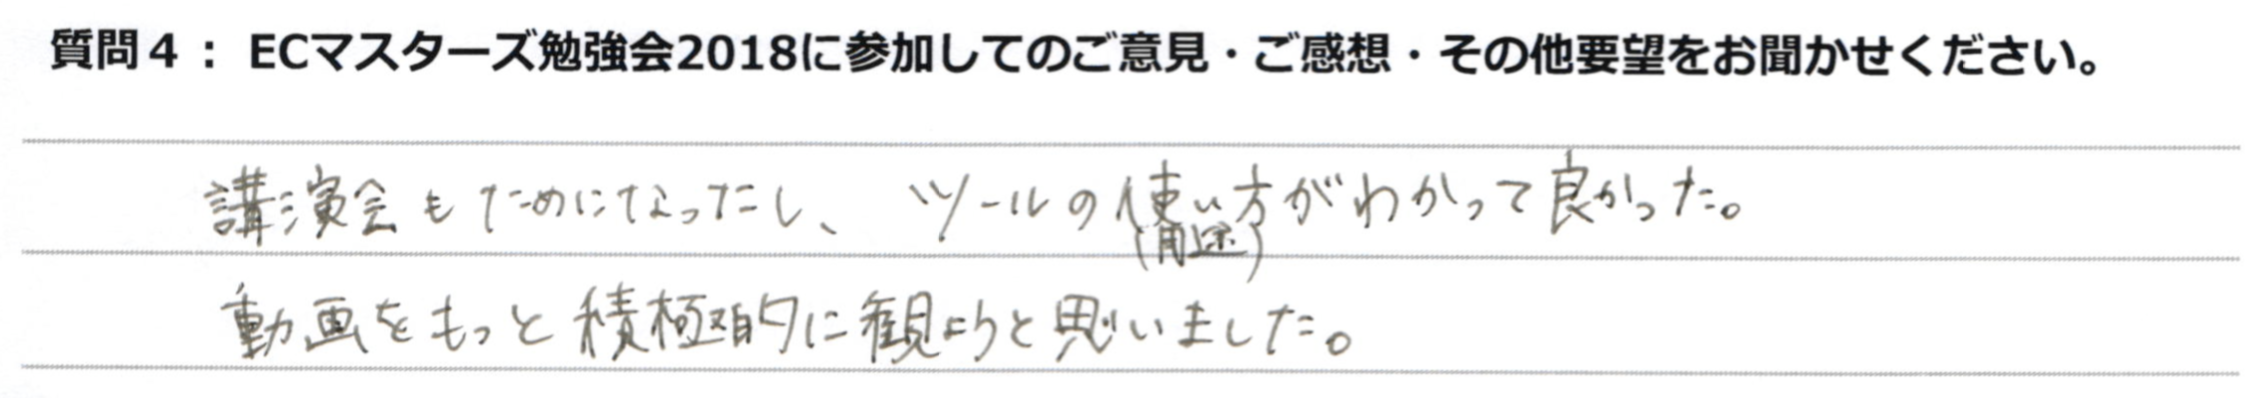 質問４： ECマスターズ勉強会2018に参加してのご意見・ご感想・その他要望をお聞かせください。
講演会もためになったし、ツールの使い方がわかって良かった。
(用途)
動画をもっと積極的に観ようと思いました。